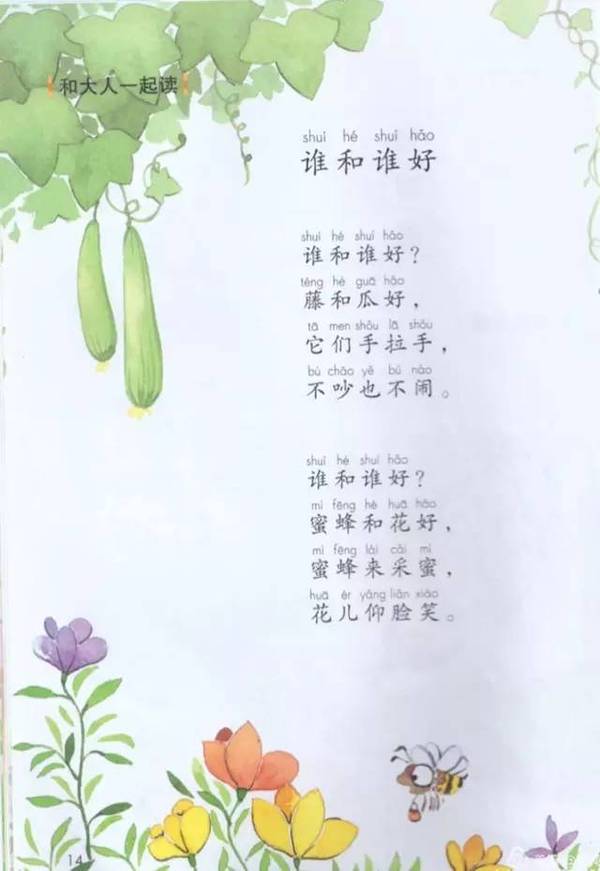 和大人一起读
shuí hé shuí hǎo
谁和谁好
shuí hé shuí hǎo
谁和谁好？
téng hé guā hǎo
藤和瓜好，
tā men shǒu lā shǒu
它们手拉手，
bù chǎo yě bú nào
不吵也不闹。
shuí hé shuí hǎo
谁和谁好？
mì fēng hé huā hǎo
蜜蜂和花好，
mì fēng lái cǎi mì
蜜蜂来采蜜，
huā ér yǎng liǎn xiào
花儿仰脸笑。
14